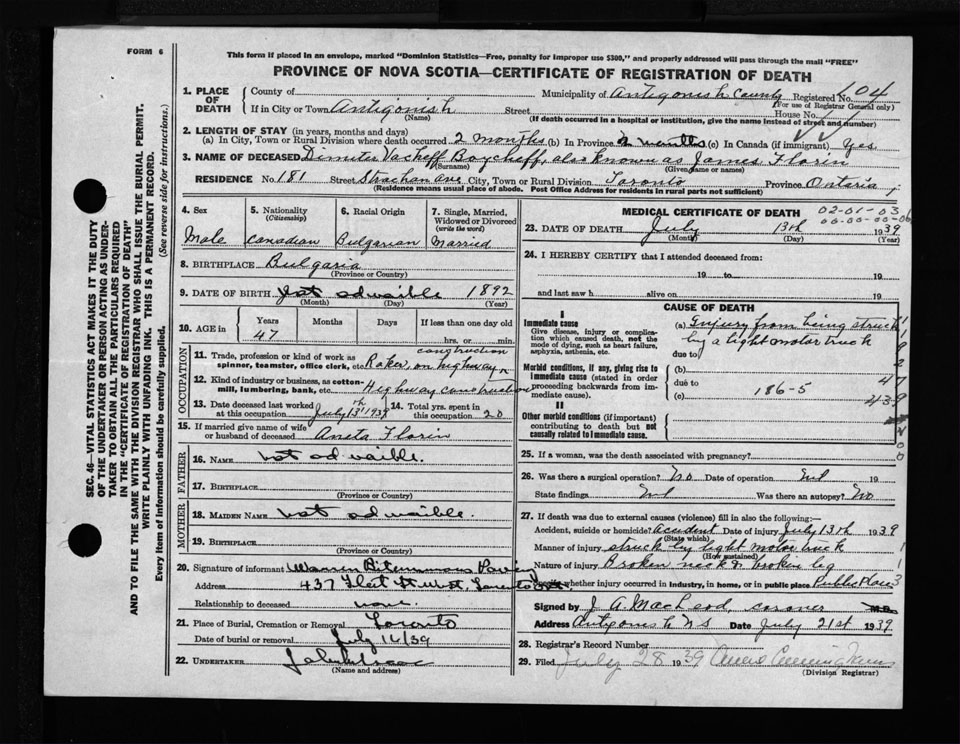 FORM 6
This form if placed in an envelope, marked "Dominion Statistics—Free, penalty for improper use $300," and properly addressed will pass through the mail "FREE"
PROVINCE OF NOVA SCOTIA—CERTIFICATE OF REGISTRATION OF DEATH
SEC. 46—VITAL STATISTICS ACT MAKES IT THE DUTY
OF THE UNDERTAKER OR PERSON ACTING AS UNDER-
TAKER TO OBTAIN ALL THE PARTICULARS REQUIRED
IN THE "CERTIFICATE OF REGISTRATION OF DEATH"
AND TO FILE THE SAME WITH THE DIVISION REGISTRAR WHO SHALL ISSUE THE BURIAL PERMIT.
WRITE PLAINLY WITH UNFADING INK. THIS IS A PERMANENT RECORD.
Every item of information should be carefully supplied. (See reverse side for instructions.)
1. PLACE OF DEATH
County of Municipality of Antigonish County Registered No. 404
(For use of Registrar General only)
If in City or Town Antigonish Street House No.
(Name) (If death occurred in a hospital or institution, give the name instead of street and number)
2. LENGTH OF STAY (in years, months and days)
(a) In City, Town or Rural Division where death occurred 2 months (b) In Province 2 months (c) In Canada (if immigrant) Yes
3. NAME OF DECEASED Dimiter Vacheff Boycheff, also known as James Florin
(Surname) (Given name or names)
RESIDENCE No. 181 Street Strachan Ave City, Town or Rural Division Toronto Province Ontario
(Residence means usual place of abode. Post Office Address for residents in rural parts not sufficient)
4. Sex
Male
5. Nationality
(Citizenship)
Canadian
6. Racial Origin
Bulgarian
7. Single, Married,
Widowed or Divorced
(write the word)
Married
8. BIRTHPLACE Bulgaria
(Province or Country)
9. DATE OF BIRTH 1892
(Month) (Day) (Year)
10. AGE in
Years Months Days If less than one day old
47 hrs. or min.
OCCUPATION
11. Trade, profession or kind of work as
spinner, teamster, office clerk, etc. Raker, on highway construction
12. Kind of industry or business, as cotton-
mill, lumbering, bank, etc. Highway construction
13. Date deceased last worked
at this occupation July 13th 1939
14. Total yrs. spent in
this occupation 20
15. If married give name of wife
or husband of deceased Aneta Florin
FATHER
16. NAME
17. BIRTHPLACE
(Province or Country)
MOTHER
18. MAIDEN NAME
19. BIRTHPLACE
(Province or Country)
20. Signature of informant Warren Bituminous Paving
Address 437 Fleet St West, Toronto Ont.
Relationship to deceased none
21. Place of Burial, Cremation or Removal Toronto
Date of burial or removal July 16/39
22. UNDERTAKER
(Name and address)
MEDICAL CERTIFICATE OF DEATH
02-01-03
00-00-00-06
23. DATE OF DEATH July 13th 1939
(Month) (Day) (Year)
24. I HEREBY CERTIFY that I attended deceased from:
19 to 19
and last saw h alive on 19
CAUSE OF DEATH
I
Immediate cause
Give disease, injury or complica-
tion which caused death, not the
mode of dying, such as heart failure,
asphyxia, asthenia, etc.
(a) Injury from being struck
by a light motor truck
due to
Morbid conditions, if any, giving rise to
immediate cause (stated in order
proceeding backwards from im-
mediate cause).
(b)
due to
(c) 186-5
II
Other morbid conditions (if important)
contributing to death but not
causally related to immediate cause.
25. If a woman, was the death associated with pregnancy?
26. Was there a surgical operation? No Date of operation Nil
State findings Nil Was there an autopsy? No
27. If death was due to external causes (violence) fill in also the following:—
Accident, suicide or homicide? Accident Date of injury July 13th 1939
(State which)
Manner of injury struck by light motor truck
(How sustained)
Nature of injury Broken neck & broken leg
whether injury occurred in industry, in home, or in public place Public Place
Signed by J. A. MacLeod, coroner M.D.
Address Antigonish N S Date July 21st 1939
28. Registrar's Record Number
29. Filed July 28 1939
(Division Registrar)